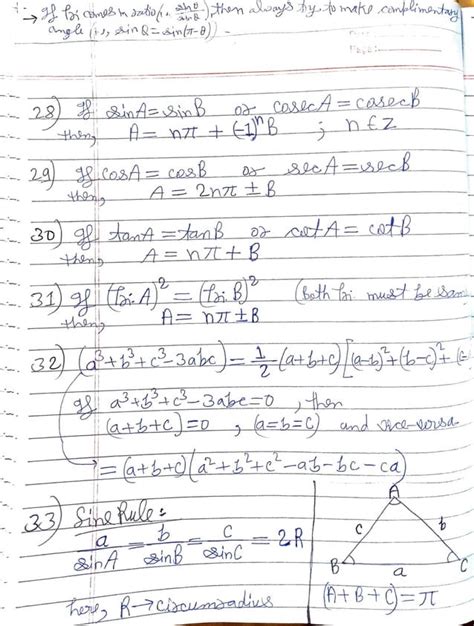 If tri comes in ratio (i.e, sinθ/sinθ), then always try to make complimentary
angle (i.e, sinθ = sin(π-θ)) -
28) If sinA = sinB or cosecA = cosecB
then, A = nπ + (-1)^n B ; n ∈ Z
29) If cosA = cosB or secA = secB
then, A = 2nπ ± B
30) If tanA = tanB or cotA = cotB
then, A = nπ + B
31) If (tri A)² = (tri B)² (both tri must be same
then, A = nπ ± B
32) (a³+b³+c³-3abc) = 1/2 (a+b+c) [(a-b)²+(b-c)²+(c
If a³+b³+c³-3abc=0, then
(a+b+c)=0 , (a=b=c) and vice-versa
= (a+b+c) (a²+b²+c²-ab-bc-ca)
33) Sine Rule:
a/sinA = b/sinB = c/sinC = 2R
here, R → circumradius
A
c b
B a C
(A+B+C) = π